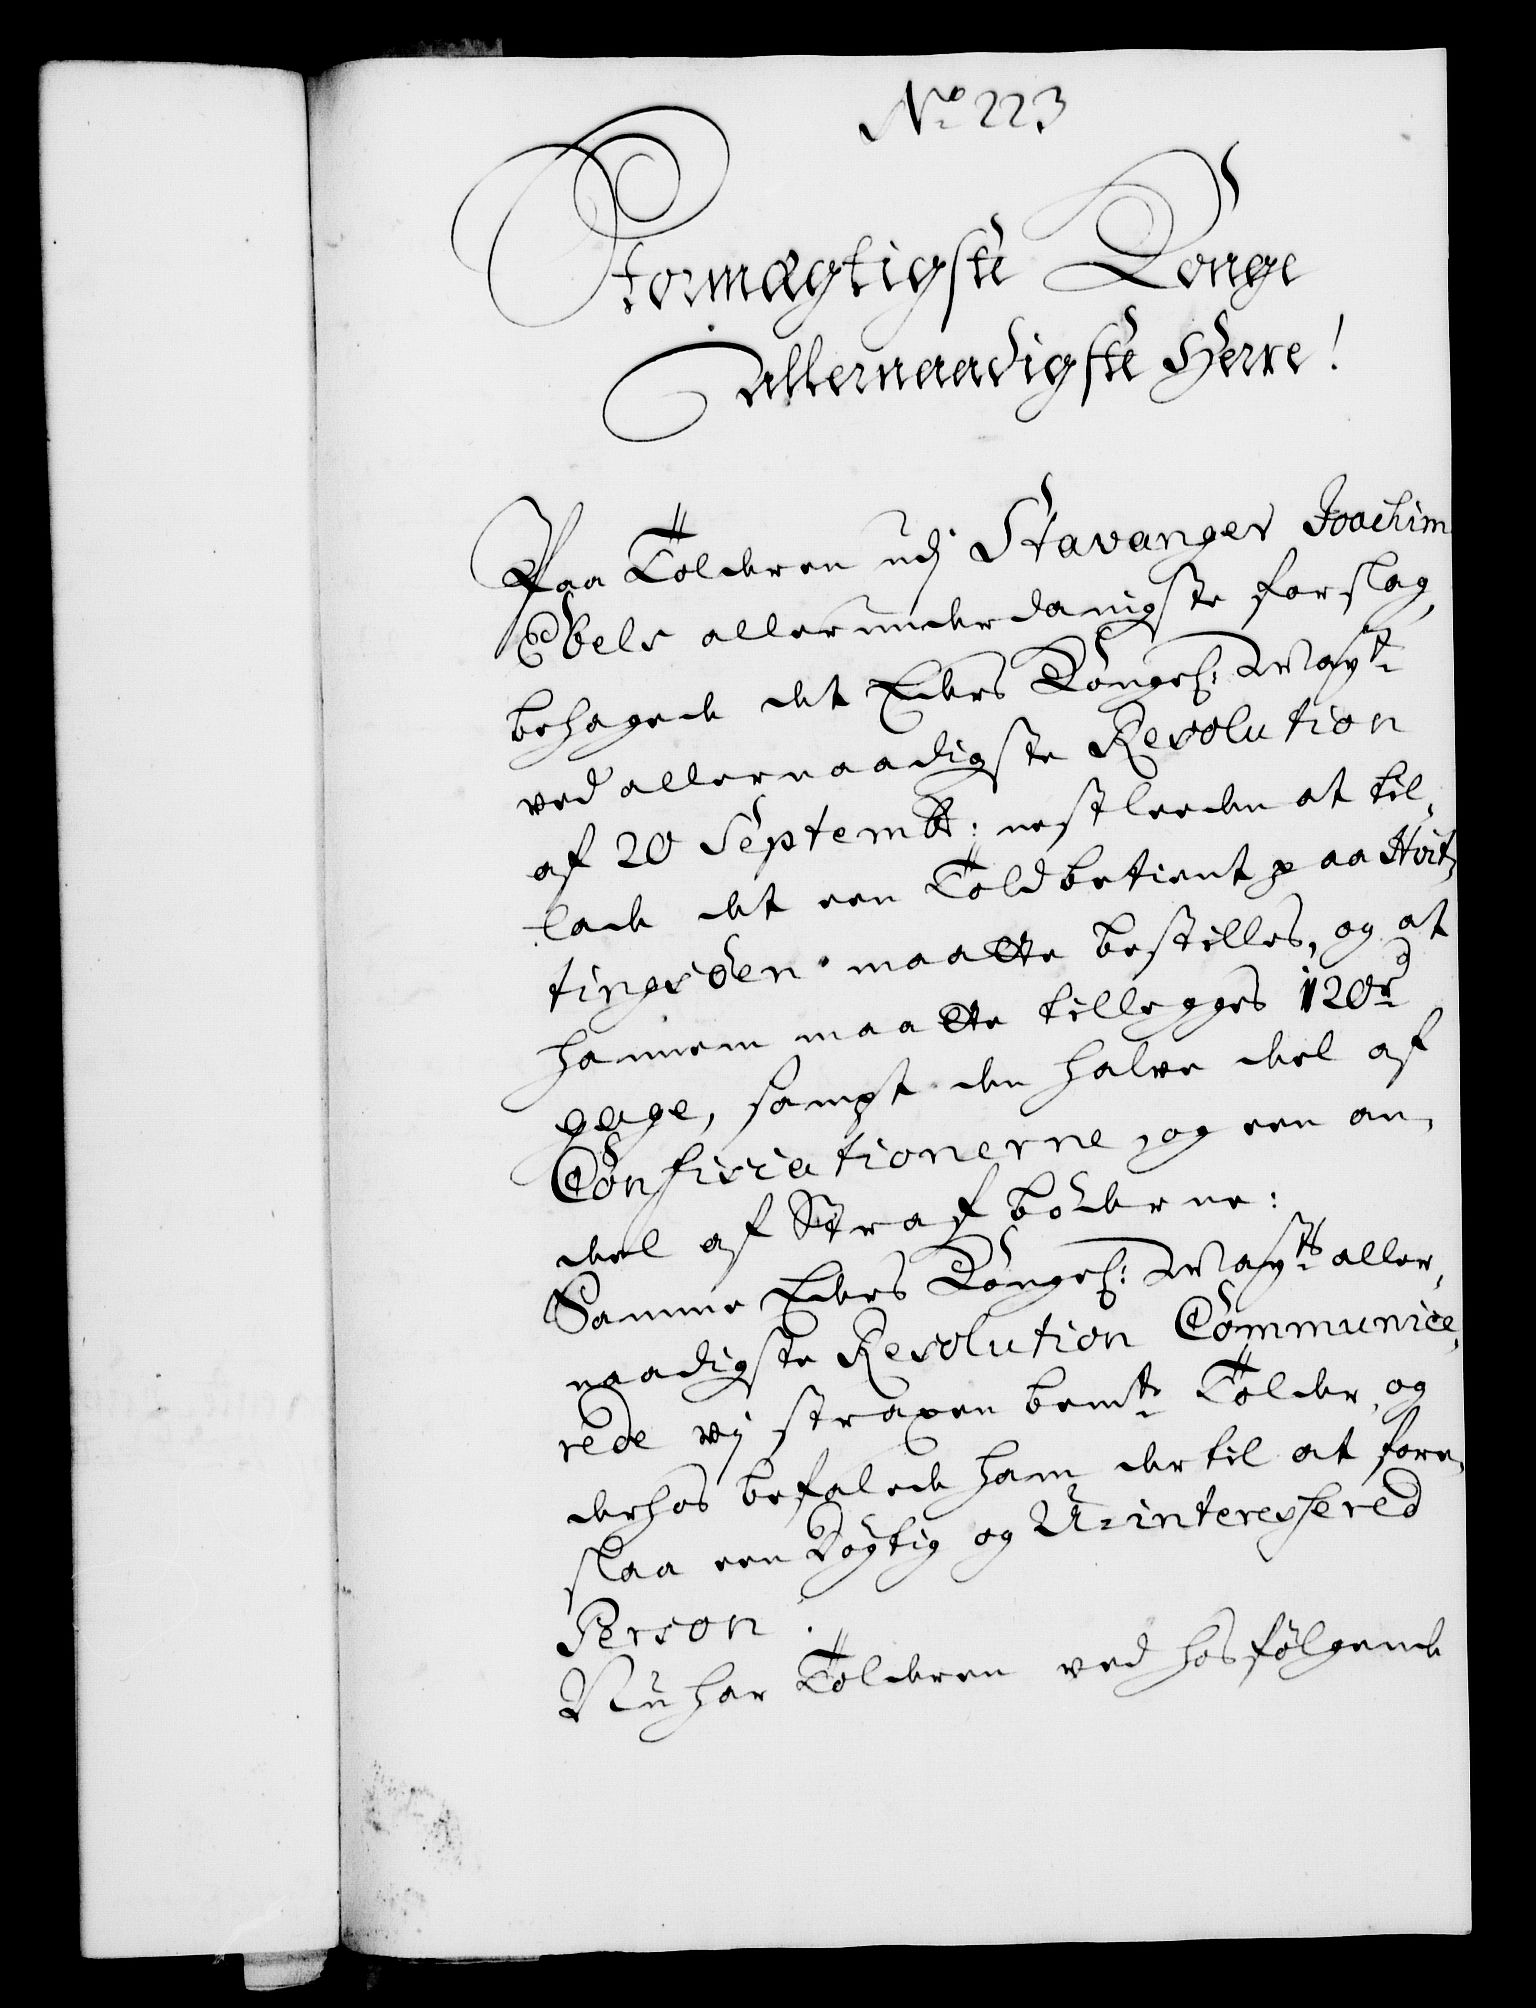 No 223
Stormægtigste Konge
allernaadigste Herre!
Paa Tolderen udj Stavanger Joachim
Ebels allerunderdanigste forslag,
behagede det Eders Kongel: Mayt
ved allernaadigste Resolution
af 20 Septembr: nestleeden at til,
lade det een Toldbetient paa Hvit,
tingsøen maatte bestilles, og at
hannem maatte tillegges 120 rd
gage, sampt den halve deel af
Confisicationerne, og een an,
deel af Straf bøderne:
Samme Eders Kongel: Mayts aller,
naadigste Resolution Communice,
rede vj straxen bemte Tolder, og
derhos befalede ham dertil at fore,
slaa een Dygtig og U-interessered
Person.
Nu har Tolderen ved hosfølgende